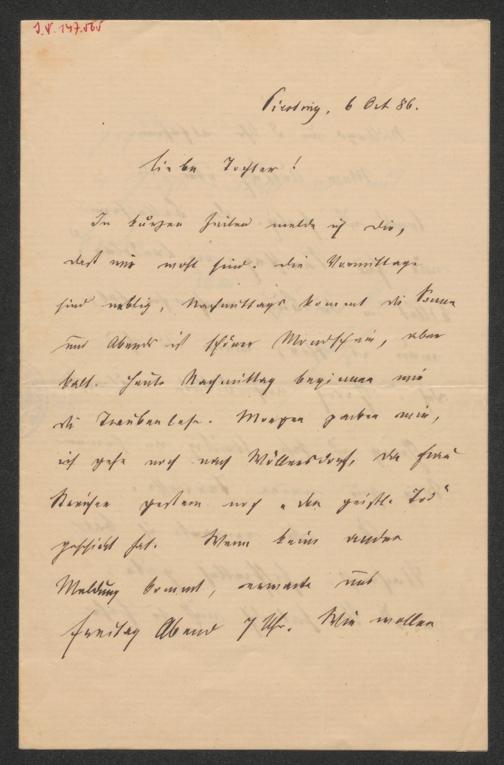 I.N. 147.565
Piesting, 6 Oct 86.
Liebe Tochter!
In kurzen Zeilen melde ich Dir,
daß wir wohl sind. Die Vormittage
sind neblig, Nachmittags kommt die Sonne
und Abends ist schöner Mondschein, aber
kalt. Heute Nachmittag beginnen wir
die Traubenlese. Morgen packen wir,
ich gehe noch nach Wöllersdorf, da Frau
gestern noch „den geistl. Tod“
geschickt hat. Wenn keine andere
Meldung kommt, erwarte uns
Freitag Abend 7 Uhr. Wir wollen